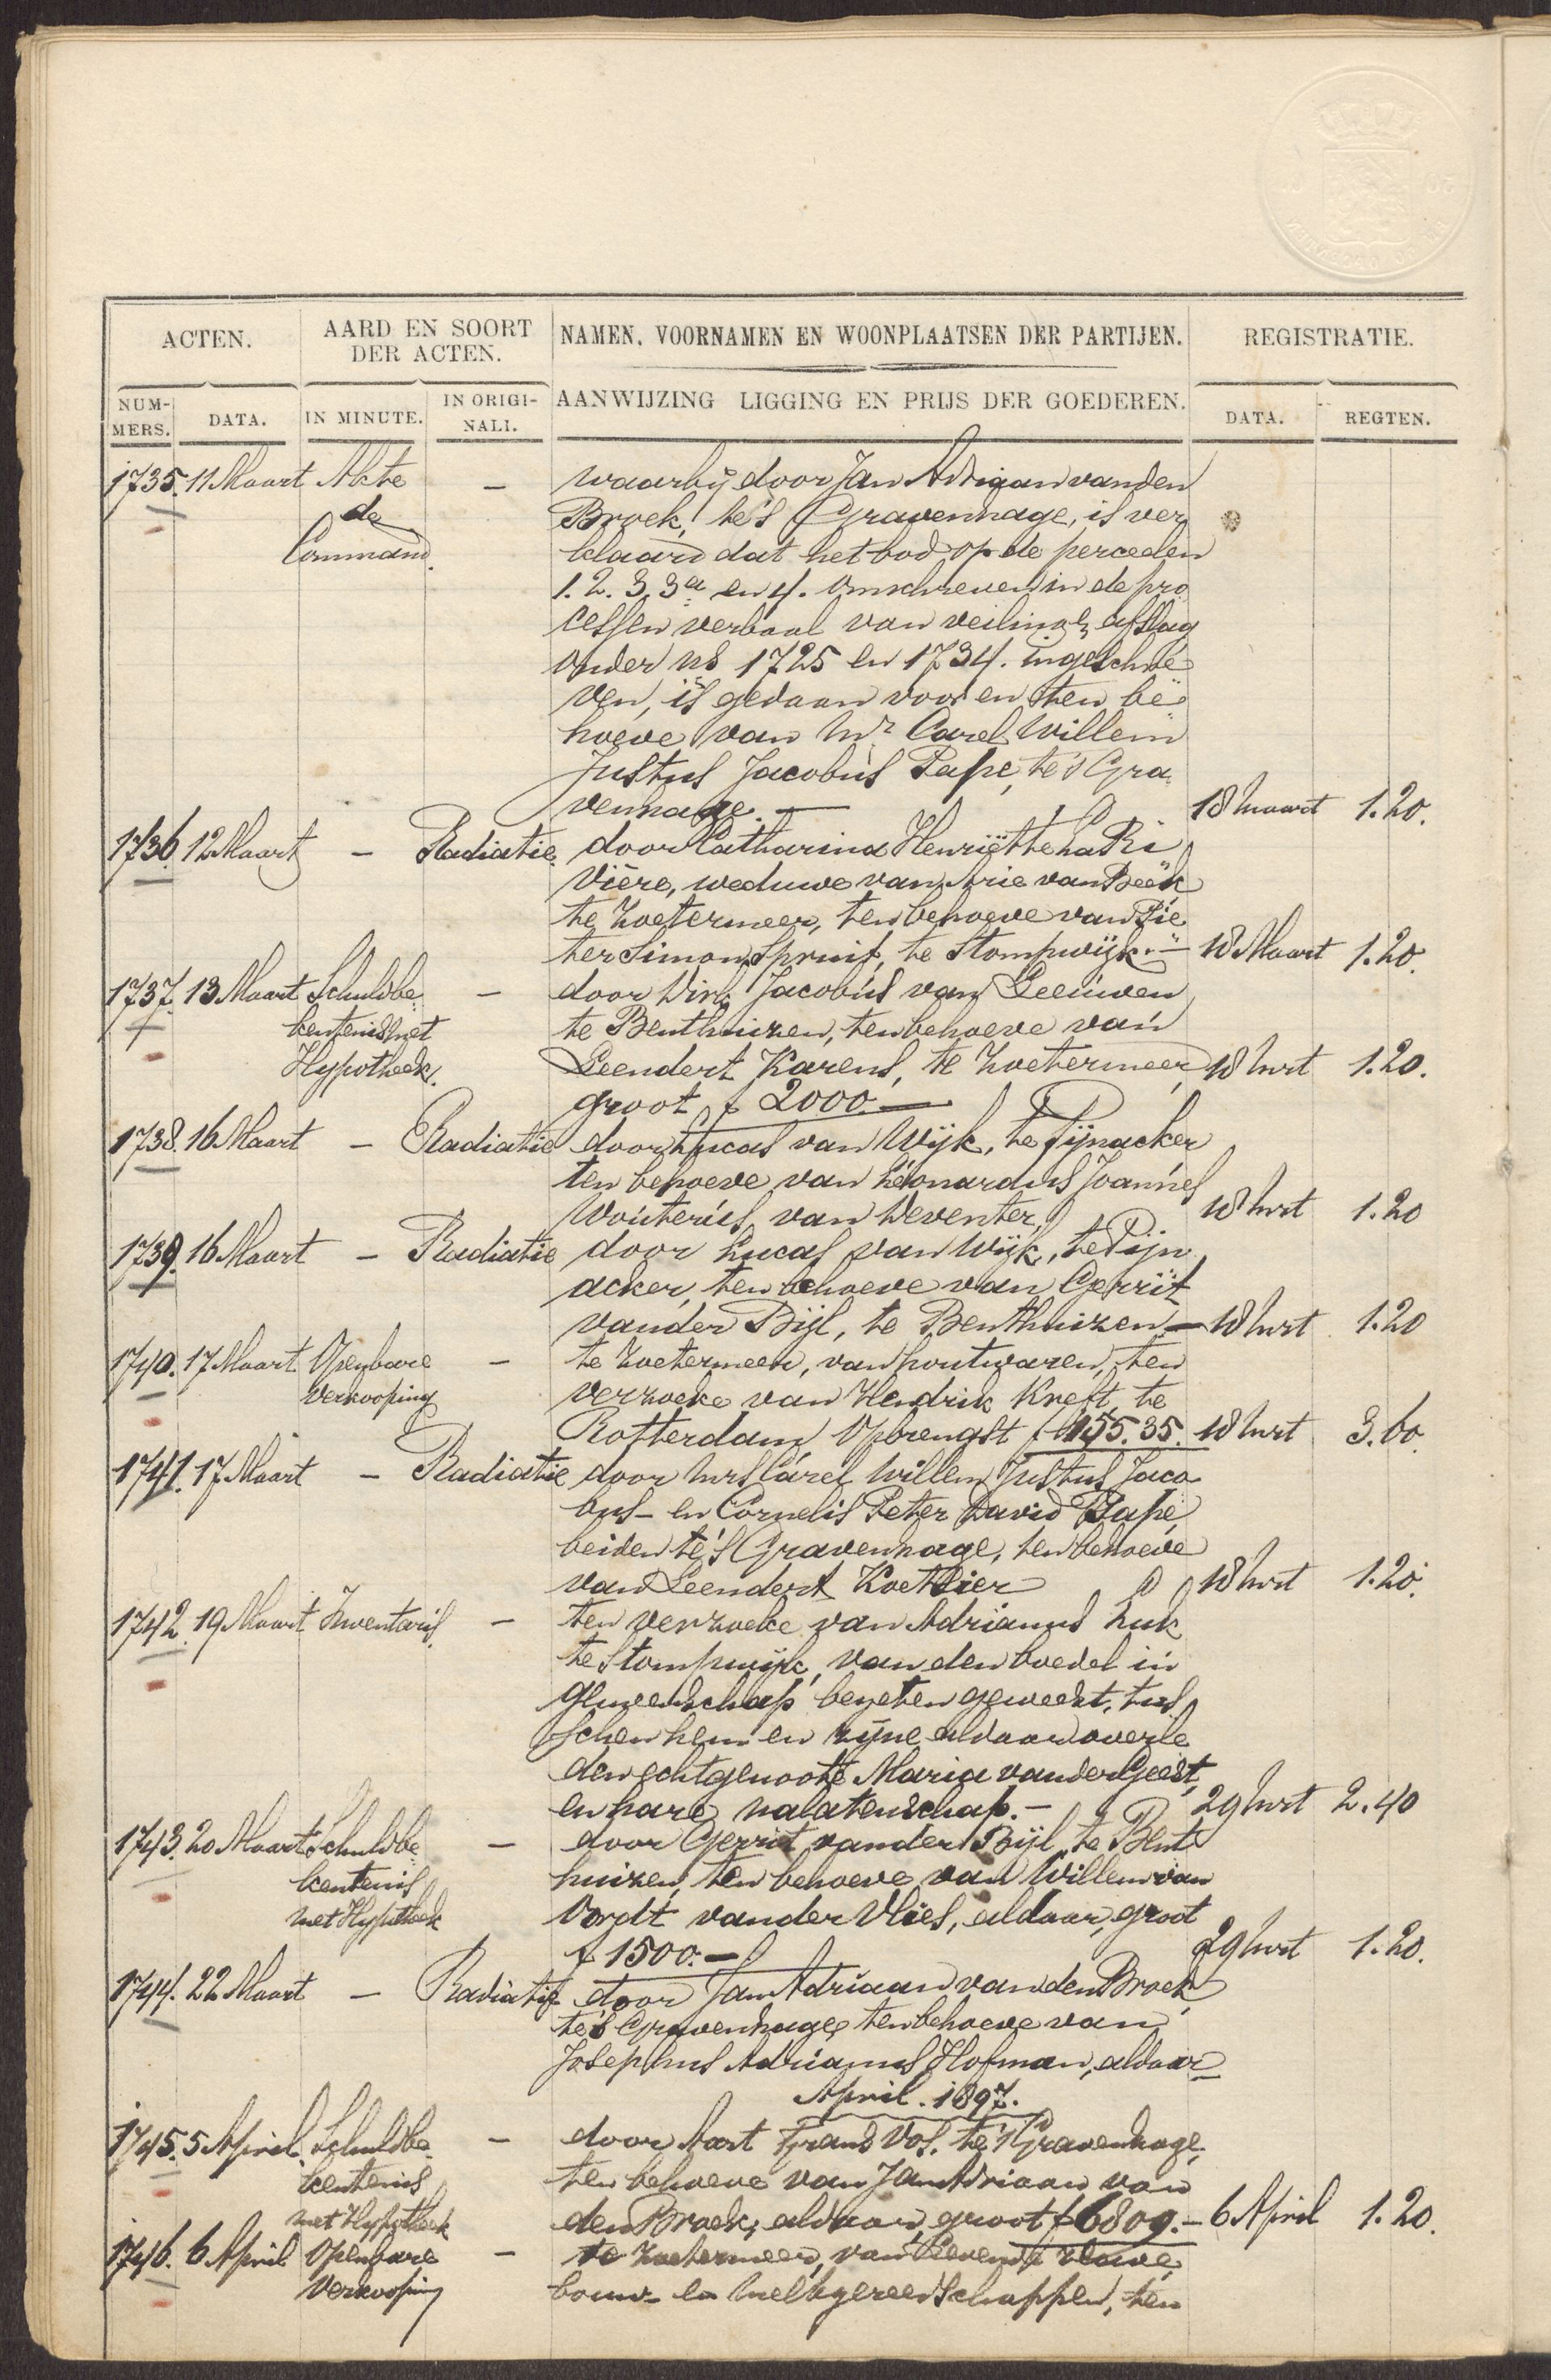 ACTEN.
AARD EN SOORT
DER ACTEN.
NAMEN, VOORNAMEN EN WOONPLAATSEN DER PARTIJEN.
REGISTRATIE.
NUM-
MERS.
DATA.
IN MINUTE.
IN ORIGI-
NALI.
AANWIJZING LIGGING EN PRIJS DER GOEDEREN.
DATA.
REGTEN.
1735. 11 Maart Akte — waarbij door Jan Adriaan van den
de Broek, te 's Gravenhage, is ver
Command. klaard dat het bod op de perceelen
1. 2. 3. 3a en 4. omschreven in de pro
cessen verbaal van veiling & afslag
onder ns 1725 en 1734. ingeschre
ven, is gedaan voor en ten be
hoeve van Mr Carel Willem
Justus Jacobus Pape, te 's Gra
venhage. — 18 Maart 1.20.
1736. 12 Maart — Radiatie door Catharina Henriëtte La Ri
vière, weduwe van Arie van Beek
te Zoetermeer, ten behoeve van Pie
ter Simon Spruit, te Stompwijk. — 18 Maart 1.20.
1737. 13 Maart Schuldbe — door Dirk Jacobus van Leeuwen
kentenis met te Benthuizen, ten behoeve van
Hypotheek. Leendert Karens, te Zoetermeer 18 Mrt 1.20.
groot f 2000.—
1738. 16 Maart — Radiatie door Lucas van Wijk, te Pijnacker
ten behoeve van Leonardus Joannes
Wouterus van Deventer. 18 Mrt 1.20
1739. 16 Maart — Radiatie door Lucas van Wijk, te Pijn
acker, ten behoeve van Gerrit
van der Bijl, te Benthuizen — 18 Mrt 1.20
1740. 17 Maart Openbare — te Zoetermeer, van houtwaren, ten
verkooping verzoeke van Hendrik Kreft, te
Rotterdam Opbrengst f 155.35. 18 Mrt 3.60.
1741. 17 Maart — Radiatie door Mrs Carel Willem Justus Jaco
bus - en Cornelis Peter David Pape,
beiden te 's Gravenhage, ten behoeve
van Leendert Koetsier 18 Mrt 1.20.
1742. 19 Maart Inventaris. — ten verzoeke van Adrianus Luk
te Stompwijk, van den boedel in
gemeenschap bezeten geweest, tus
schen hem en zijne aldaar overle
den echtgenoote Maria van der Geest,
en hare nalatenschap. — 29 Mrt 2.40
1743. 20 Maart Schuldbe — door Gerrit van der Bijl, te Bent
kentenis huizen, ten behoeve van Willem van
met Hypotheek Vordt van der Vlies, aldaar, groot
f 1500.— 29 Mrt 1.20.
1744. 22 Maart — Radiatie door Jan Adriaan van den Broek
te 's Gravenhage ten behoeve van
Josephus Adrianus Hofman, aldaar
April. 1897.
1745. 5 April. Schuldbe — door Aart Frans Vos, te 's Gravenhage,
kentenis ten behoeve van Jan Adriaan van
met Hypotheek den Broek, aldaar, groot f 6809.— 6 April 1.20.
1746. 6 April Openbare — te Zoetermeer, van levende have,
Verkooping bouw- en melkgereedschappen, ten